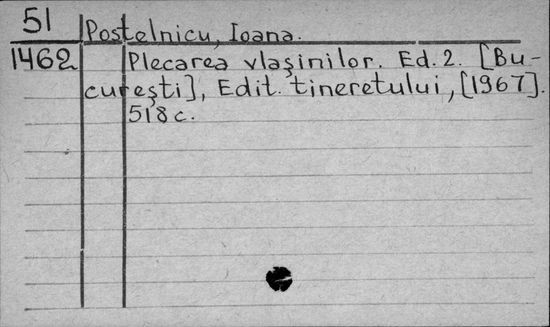 51 Postelnicu, Ioana.
1462 Plecarea vlaşinilor. Ed. 2. [Bu-
cureşti], Edit. tineretului, [1967].
518 c.